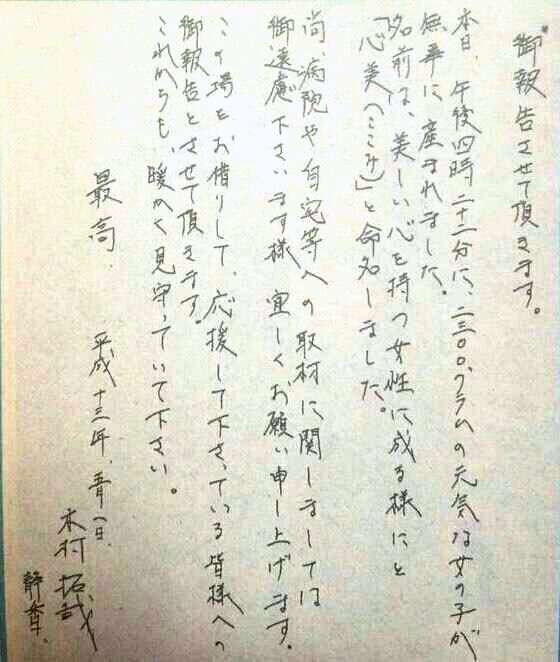 御報告させて頂きます。
本日、午後四時二十二分に、二三〇〇グラムの元気な女の子が
無事に産まれました。
名前は、美しい心を持つ女性に成る様にと
「心美(ここみ)」と命名しました。
尚、病院や自宅等への取材に関しましては
御遠慮下さいます様 宜しくお願い申し上げます。
この場をお借りして、応援して下さっている皆様への
御報告とさせて頂きます。
これからも、暖かく見守っていて下さい。
最高、 平成十三年、五月一日、
木村拓哉
静香、